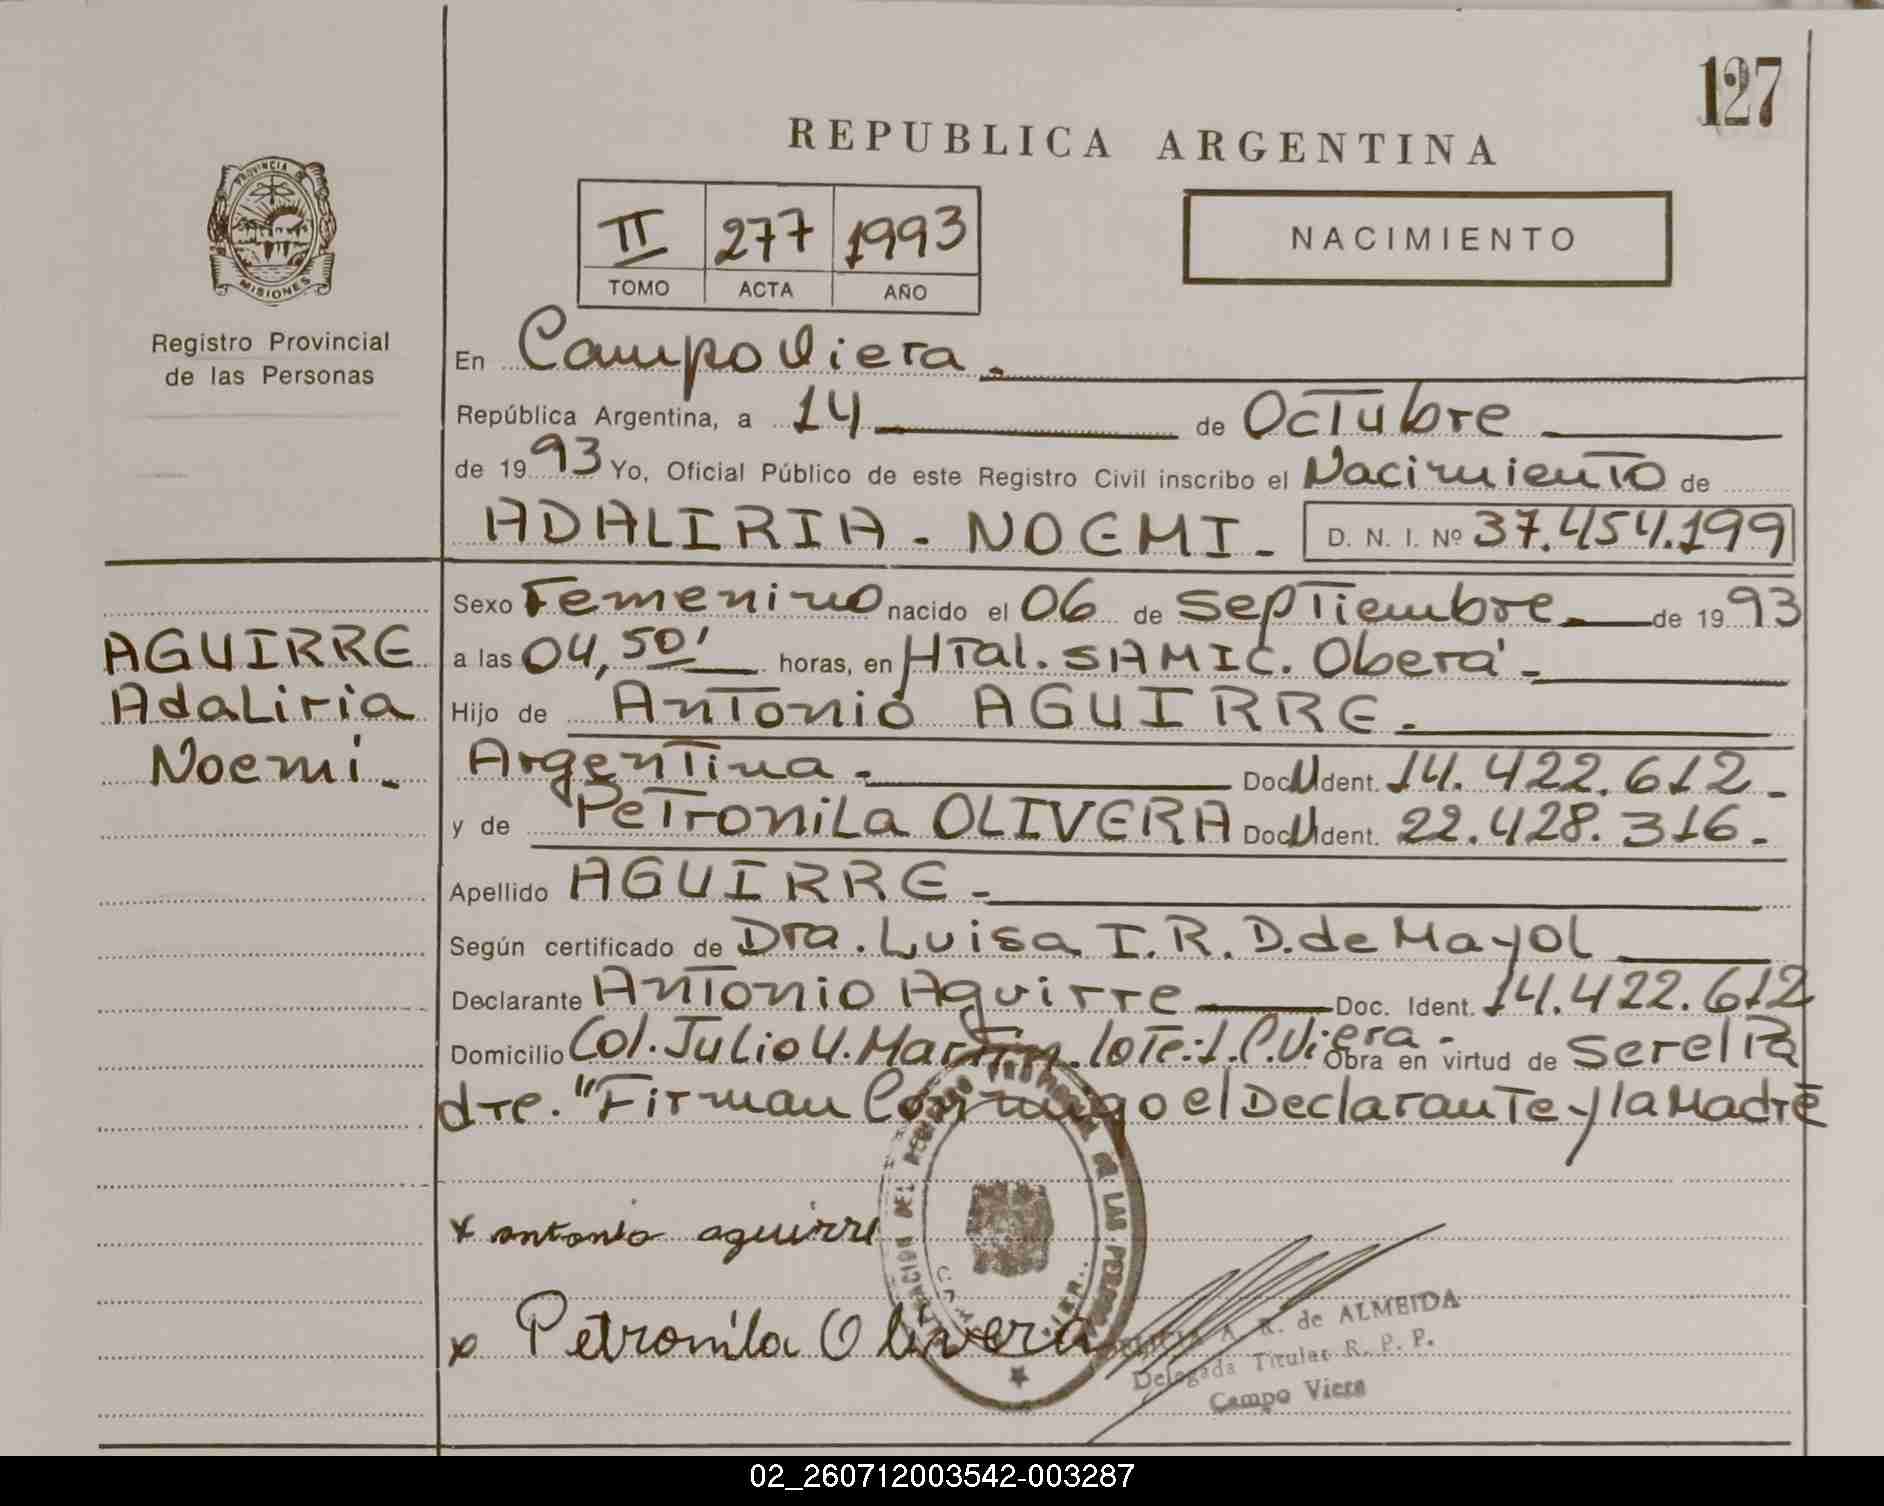 127
REPUBLICA ARGENTINA
PROVINCIA DE
MISIONES
II 277 1993
TOMO ACTA AÑO
NACIMIENTO
Registro Provincial
de las Personas
En Campo Viera.
República Argentina, a 14 de Octubre
de 1993 Yo, Oficial Público de este Registro Civil inscribo el Nacimiento de
ADALIRIA - NOEMI - D. N. I. Nº 37.454.199
AGUIRRE
Adaliria
Noemi.
Sexo Femenino nacido el 06 de Septiembre de 1993
a las 04,50' horas, en HTal. SAMIC. Oberá -
Hijo de Antonio AGUIRRE.
Argentina. Doc U Ident. 14.422.612 -
y de Petronila OLIVERA Doc U Ident. 22.428.316 -
Apellido AGUIRRE -
Según certificado de Dra. Luisa I. R. D. de Mayol
Declarante Antonio Aguirre Doc. Ident. 14.422.612
Domicilio Col. Julio U. Martin. lote: 1. C. Viera - Obra en virtud de ser el Pa
dre. "Firman Conmigo el Declarante y la Madre
x antonio aguirre
x Petronila Olivera
A. R. de ALMEIDA
Delegada Titular R. P. P.
Campo Viera
02_260712003542-003287